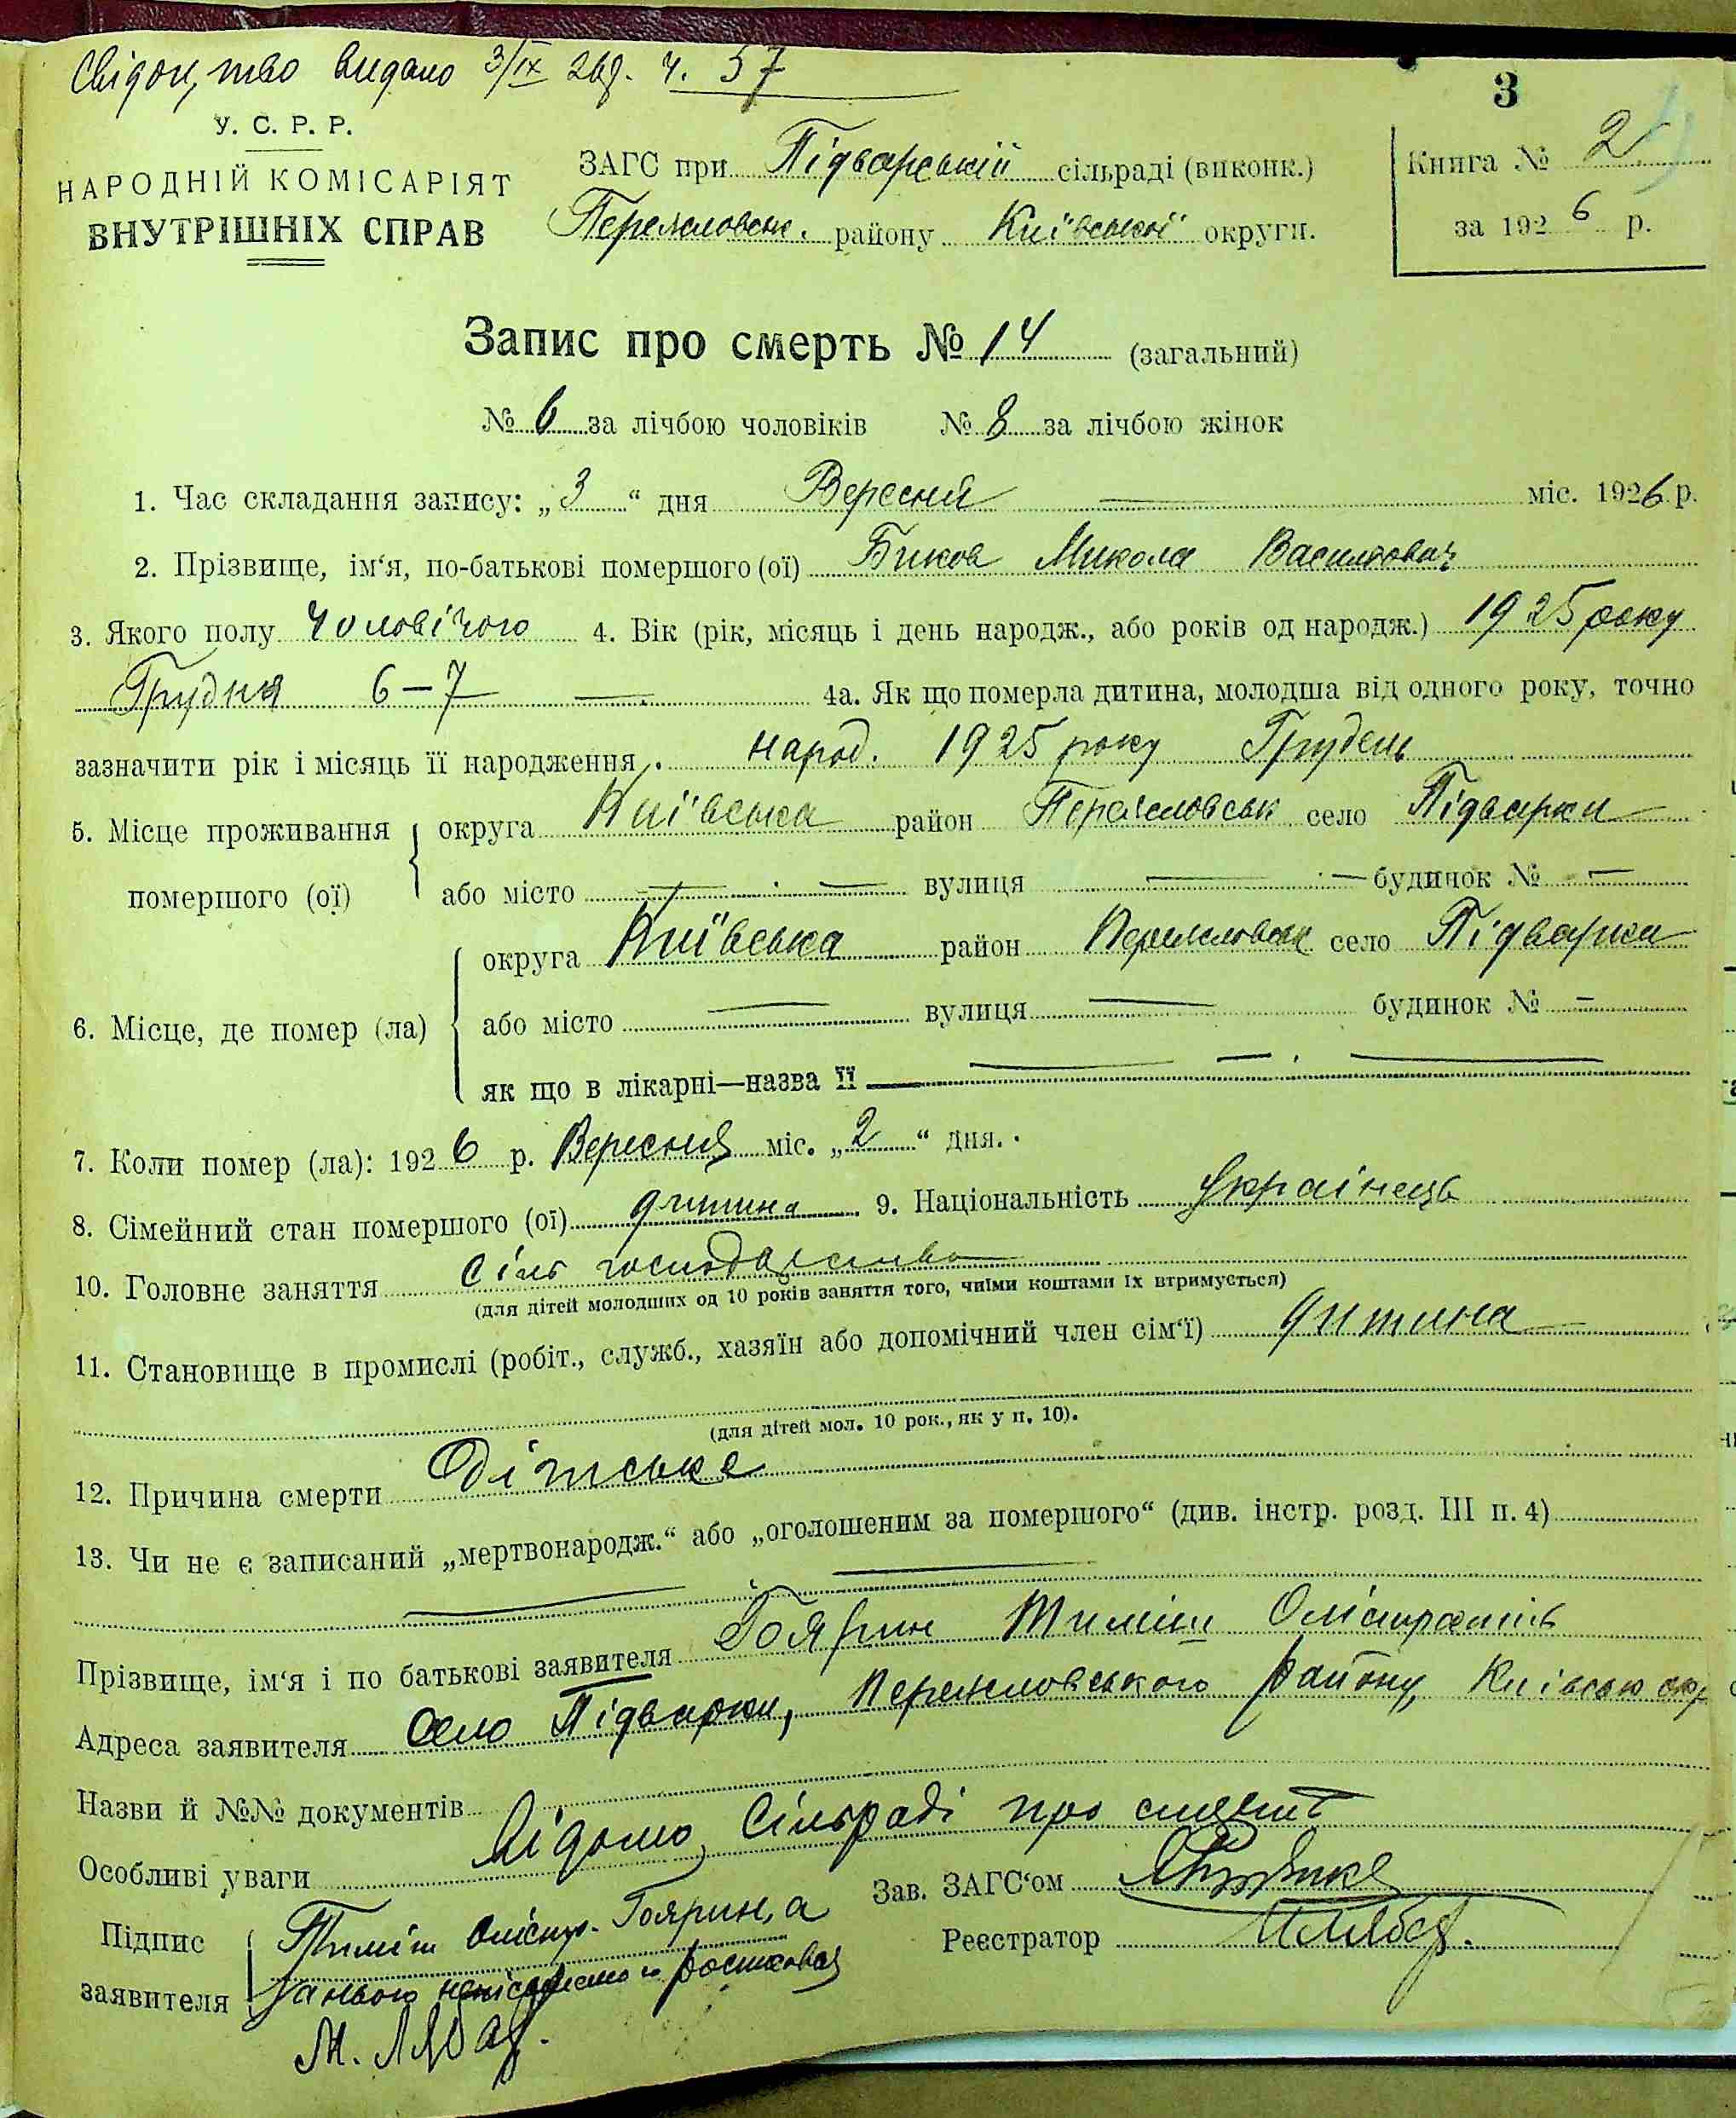 Свідоцтво видано 3/ІХ 26р. ч. 57
3
У. С. Р. Р.
НАРОДНІЙ КОМІСАРІЯТ
ВНУТРІШНІХ СПРАВ
ЗАГС при Підварській сільраді (виконк.)
Переяловськ. району Київської округи.
Книга № 2
за 1926 р.
Запис про смерть № 14 (загальний)
№ 6 за лічбою чоловіків № 8 за лічбою жінок
1. Час складання запису: „3“ дня Вересня міс. 1926 р.
2. Прізвище, ім‘я, по-батькові помершого (ої) Биков Микола Васильович
3. Якого полу Чоловічого 4. Вік (рік, місяць і день народж., або років од народж.) 1925 року
Грудня 6–7 4а. Як що померла дитина, молодша від одного року, точно
зазначити рік і місяць її народження. народ. 1925 року Грудень
5. Місце проживання помершого (ої) округа Київська район Переясловськ село Підварки
або місто — вулиця — будинок № —
6. Місце, де помер (ла) округа Київська район Переясловськ село Підварки
або місто — вулиця — будинок № —
як що в лікарні—назва її —
7. Коли помер (ла): 1926 р. Вересня міс. „2“ дня.
8. Сімейний стан помершого (ої) дитина 9. Національність Українець
10. Головне заняття Сіль господарство
(для дітей молодших од 10 років заняття того, чиїми коштами їх втримується)
11. Становище в промислі (робіт., служб., хазяїн або допомічний член сім‘ї) дитина
(для дітей мол. 10 рок., як у п. 10).
12. Причина смерти Дітське
13. Чи не є записаний „мертвонародж.“ або „оголошеним за помершого“ (див. інстр. розд. III п. 4)
Прізвище, ім‘я і по батькові заявителя Гоярин Тиміш
Адреса заявителя Село Підварки, Переясловського району, Київсько окр
Назви й №№ документів
Особливі уваги Відомо Сільраді про смерть
Зав. ЗАГС‘ом
Підпис заявителя Тиміш Гоярин, а
Реєстратор
за нього росписався
М.